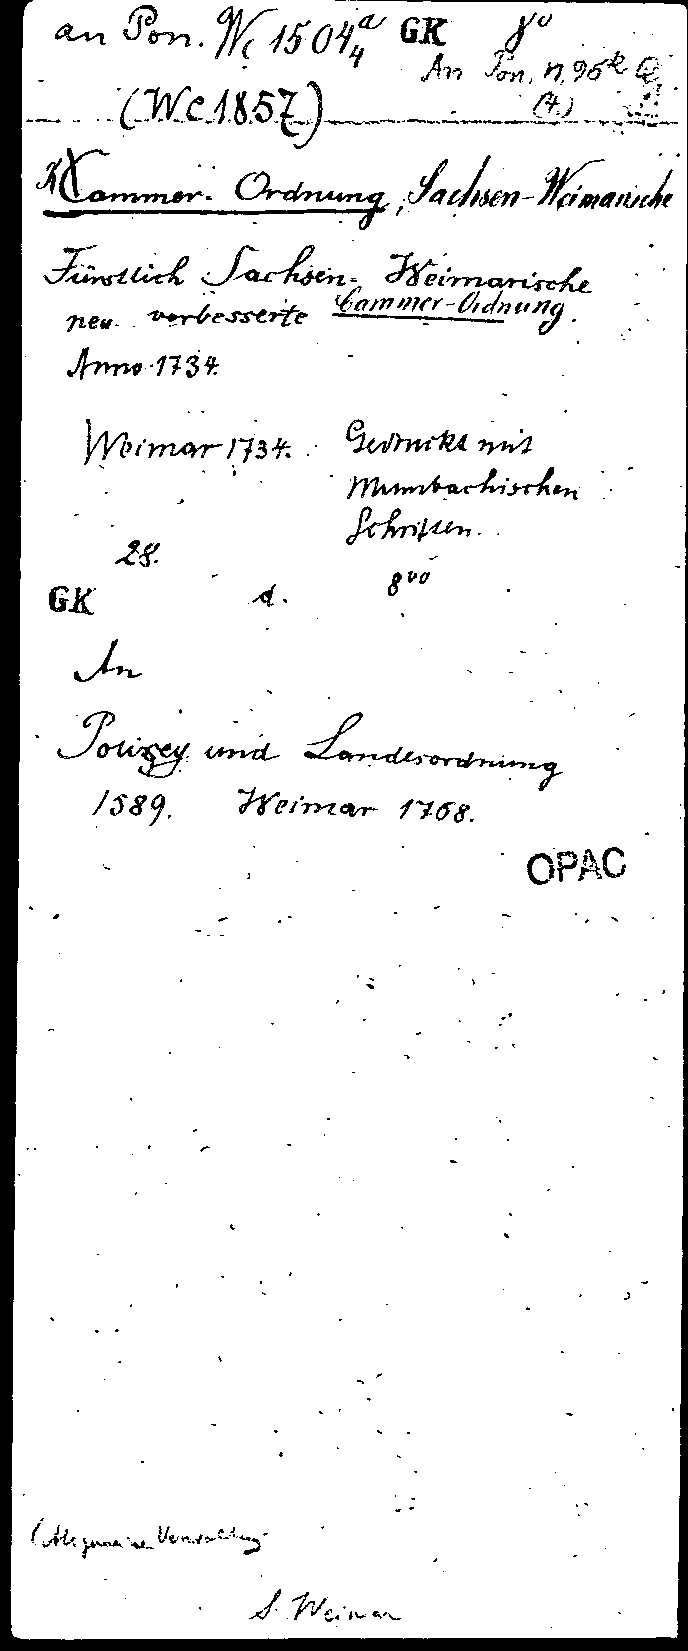 an Pon. Wc 1504ᵃ₄ GK 8°
An Pon. n. 96
(4)
(Wc 1857)
Kammer-Ordnung, Sachsen-Weimarische
Fürstlich Sachsen-Weimarische
neu verbesserte Cammer-Ordnung.
Anno 1734.
Weimar 1734. Gedruckt mit
Mumbachischen
Schriften.
28.
GK d. 8vo
An
Polizey und Landesordnung
1589. Weimar 1768.
OPAC
Allgemeine Verwaltung
S. Weimar